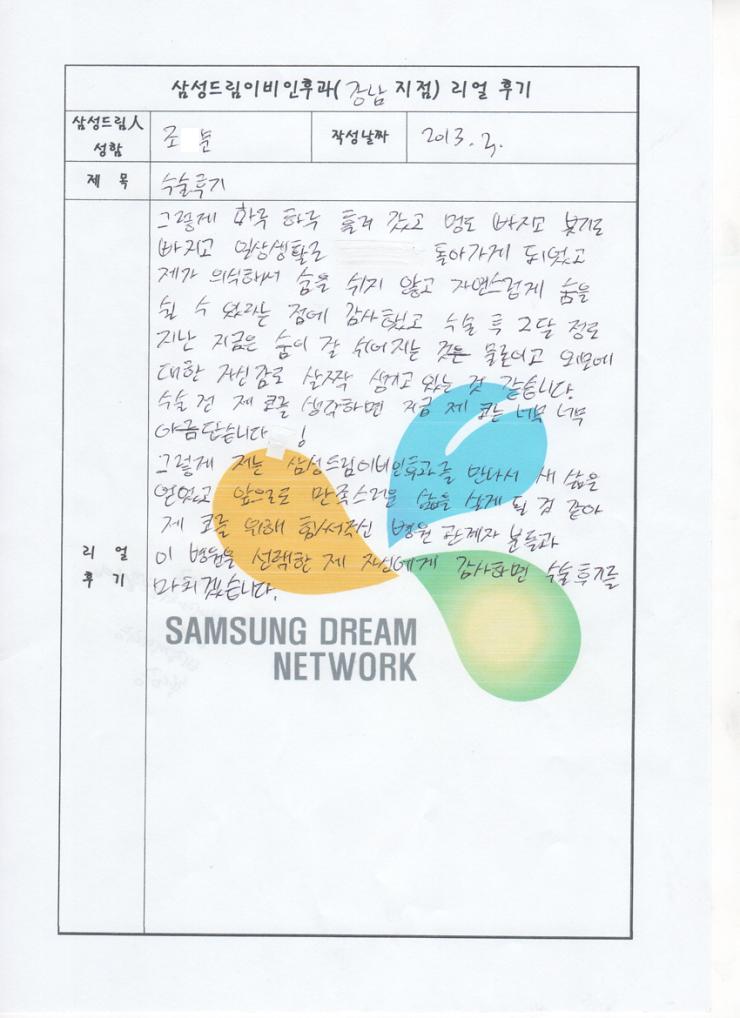 삼성드림이비인후과( 강남 지점) 리얼 후기
삼성드림人 성함
조 분
작성날짜
2013. 2.
제 목
수술후기
리 얼 후 기
그렇게 하루 하루 흘러 갔고 멍도 빠지고 붓기도
빠지고 일상생활로 돌아가게 되었고
제가 의식해서 숨을 쉬지 않고 자연스럽게 숨을
쉴 수 있다는 점에 감사했고 수술 후 2달 정도
지난 지금은 숨이 잘 쉬어지는 것은 물론이고 외모에
대한 자신감도 살짝 생기고 있는 것 같습니다.
수술 전 제 코를 생각하면 지금 제 코는 너무 너무
아름답습니다 !
그렇게 저는 삼성드림이비인후과를 만나서 새 삶을
얻었고 앞으로도 만족스러운 삶을 살게 될 것 같아
제 코를 위해 힘써주신 병원 관계자 분들과
이 병원을 선택한 제 자신에게 감사하면 수술후기를
마치겠습니다.
SAMSUNG DREAM
NETWORK